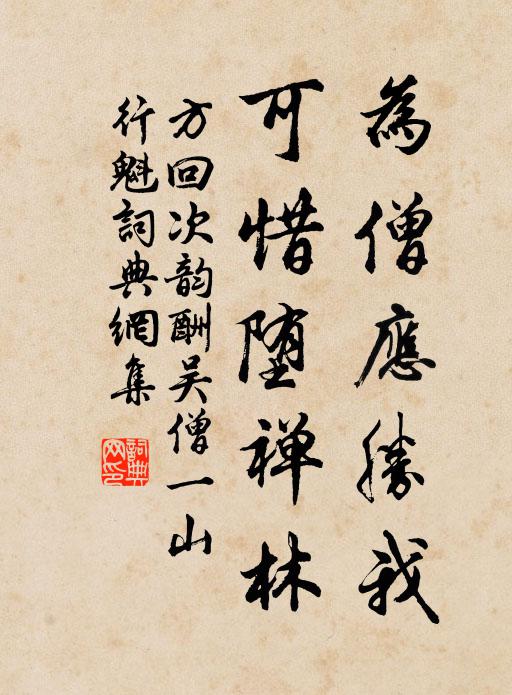 為僧應勝我
可惜堕禅林
方回次韵酬吴僧一山
行魁詞典網集
詞典
网印